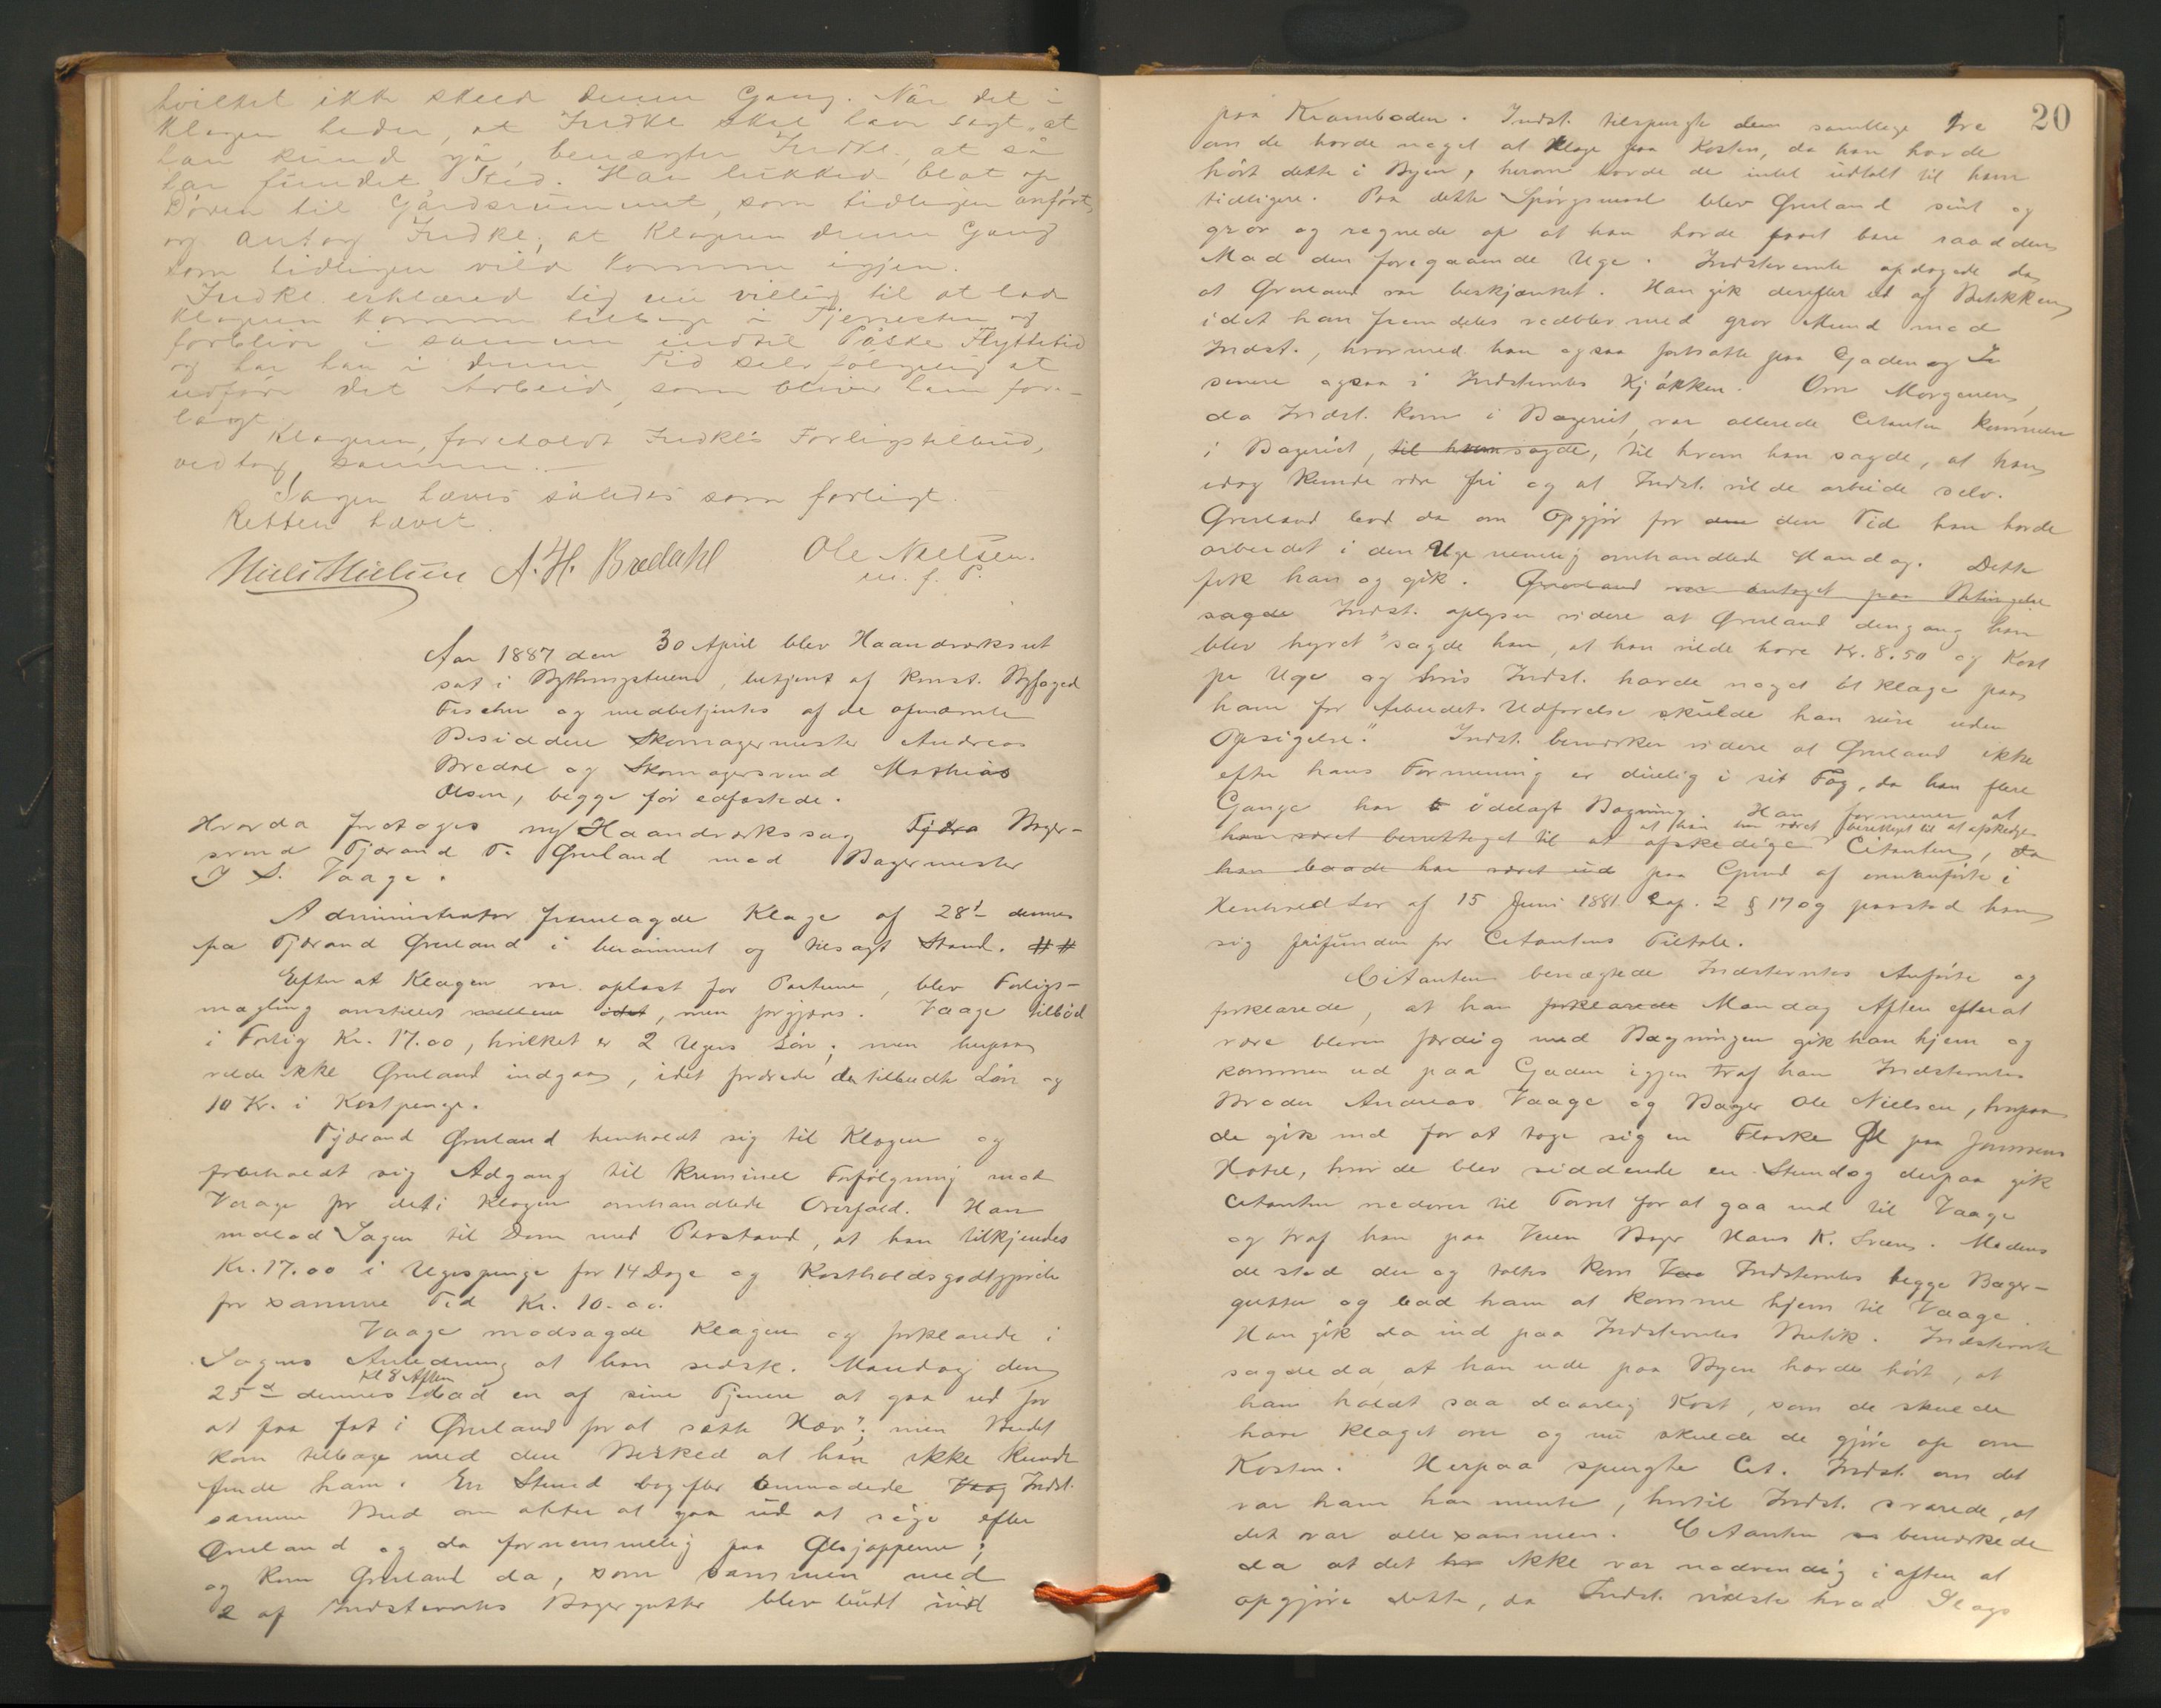 hvilket ikke skeed denne Gang. Når det i
Klagen heder, at Indkl. skal have sagt, at
han kunde gå, benægter Indkl., at så
har fundet Sted. Han lukked blot op
Døren til Gårdsrummet, som tidligere anført,
og antog Indkl., at Klageren denne Gang
som tidligere vilde komme igjen.
Indkl. erklæred sig nu villig til at lade
Klageren komme tilbage i Tjenesten og
forblive i samme indtil Påske Flyttetid
og har han i denne Tid selvfølgelig at
udføre det Arbeide, som bliver ham fore-
lagt.
Klageren, foreholdt Indkl's Forligstilbud,
vedtog samme.
Sagen hæves således som forligt.
Retten hævet.
Niels Nielsen A. H. Bredahl Ole Nielsen.
m. f. P.
Aar 1887 den 30 April blev Haandværksret
sat i Bythingstuen, betjent af konst. Byfoged
Fischer og medbetjentes af de opnævnte
Besiddere Skomagermester Andreas
Bredal og Skomagersvend Mathias
Olsen, begge før edfæstede.
Hvorda foretoges ny Haandværkssag Tjøra Bager-
svend Tjærand T. Øruland mod Bagermester
J S. Vaage.
Administrator fremlagde Klage af 28de dennes
fra Tjærand Øruland i beraimmet og tilsagt Stand. ##
Efter at Klagen var oplæst for Parterne, blev Forligs-
mægling anstillet mellem, men forgjæves. Vaage tilbød
i Forlig Kr. 17.00, hvilket er 2 Ugers Løn; men herpaa
vilde ikke Øruland indgaa, idet fordrede den tilbudte Løn og
10 Kr. i Kostpenge.
Tjærand Øruland henholdt sig til Klagen og
forbeholdt sig Adgang til kriminel Forfølgning mod
Vaage for det i Klagen omhandlede Overfald. Han
indlod Sagen til Dom med Paastand, at han tilkjendes
Kr. 17.00 i Ugespenge for 14 Dage og Kostholdsgodtgjørelse
for samme Tid Kr. 10.00.
Vaage modsagde Klagen og forklarede i
Sagens Anledning at han sidstl. Mandag den
kl 8 Aften
25de dennes bad en af sine Tjenere at gaa ud for
at faa fat i Øruland for at sætte Hæv"; men Budet
kom tilbage med den Besked at han ikke kunde
finde ham. En Stund bagefter anmodede Vaag Indst.
samme Bud om atter at gaa ud at søge efter
Øruland og da fornemmelig paa Ølsjapperne;
og kom Øruland da, som sammen med
2 af Indstevntes Bagergutter blev budt ind
20
paa Kramboden. Indst. tilspurgte dem samtlige tre
om de havde noget at klage paa Kosten, da han havde
hørt dette i Byen, herom havde de intet udtalt til ham
tidligere. Paa dette Spørgsmaal blev Øruland sint og
grov og regnede op at han havde faaet bare raadden
Mad den foregaaende Uge. Indstevnte opdagede da
at Øruland var beskjænket. Han gik derefter ud af Butikken
idet han fremdeles vedblev med grov Mund mod
Indst., hvormed han ogsaa fortsatte paa Gaden og In
senere ogsaa i Indstevntes Kjøkken. Om Morgenen,
da Indst. kom i Bageriet, var allerede Citanten kommen
i Bageriet, til hvem sagde, til hvem han sagde, at han
idag kunde være fri og at Indst. vilde arbeide selv.
Øruland bad da om Opgjør for den den Tid han havde
arbeidet i den Uge nemlig omhandlede Mandag. Dette
fik han og gik. Øruland var antaget paa Betingelse
sagde Indst. oplyser videre at Øruland dengang han
blev hyret "sagde han, at han vilde have Kr. 8.50 og Kost
pr Uge og hvis Indst. havde noget at klage paa
ham for Arbeidets Udførelse skulde han reise uden
Opsigelse." Indst. bemærker videre at Øruland ikke
efter hans Formening er duelig i sit Fag, da han flere
Gange har ødelagt Bagning. Han formener at
at han har været berettiget til at afskedige
han været berettiget til at afskedige Citanten, da
han baade har været ud paa Grund af ovenanførte i
Henhold Lov af 15 Juni 1881 Cap. 2 § 17 og paastod han
sig frifunden for Citantens Tiltale.
Citanten benægtede Indstevntes Anførte og
forklarede, at han forklarede Mandag Aften efter at
være bleven færdig med Bagningen gik han hjem og
kommen ud paa Gaden igjen traf han Indstevntes
Broder Andreas Vaage og Bager Ole Nielsen, hvorpaa
de gik ind for at tage sig en Flaske Øl paa Jonnsens
Hotel, hvor de blev siddende en Stund og derpaa gik
Citanten nedover til Torvet for at gaa ind til Vaage
og traf han paa Veien Bager Hans K. Sveen. Medens
de stod der og taltes kom Vaa Indstevntes begge Bager-
gutter og bad ham at komme hjem til Vaage.
Han gik da ind paa Indstevntes Butik. Indstevnte
sagde da, at han ude paa Byen havde hørt, at
han holdt saa daarlig Kost, som de skulde
have klaget over og nu skulde de gjøre op om
Kosten. Herpaa spurgte Cit. Indst. om det
var ham han mente, hvortil Indst. svarede, at
det var alle sammen. Citanten bemærkede
da at det ikke var nødvendig i aften at
opgjøre dette, da Indst. vidste hvad Slags